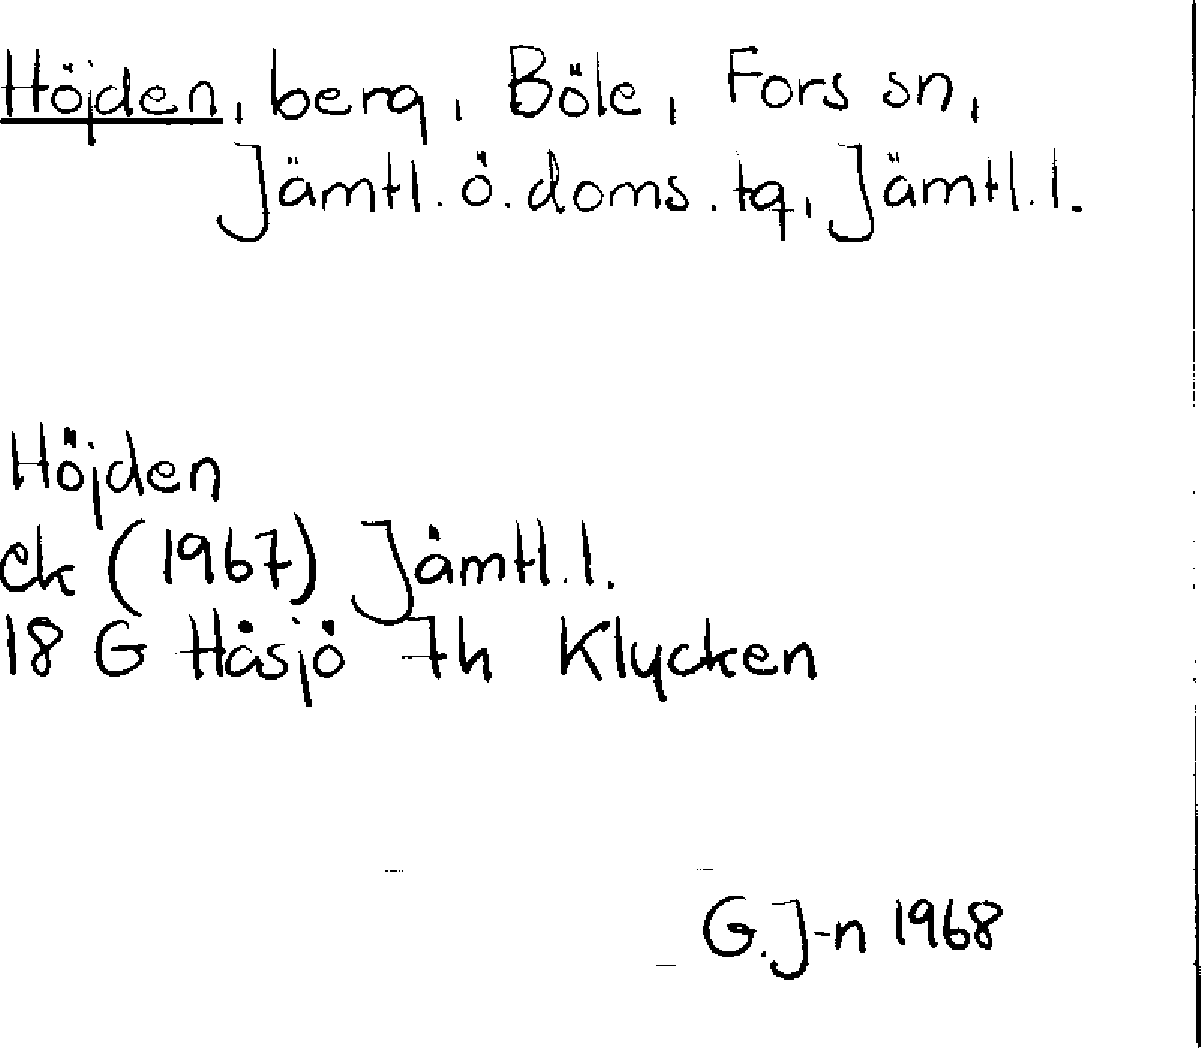 Höjden, berg, Böle, Fors sn,
Jämtl. ö. doms. tg, Jämtl. l.
Höjden
ek (1967) Jämtl. l.
18 G Håsjö 7h Klycken
G. J-n 1968